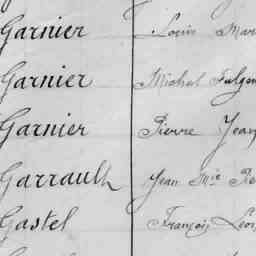 Garnier Louis Mar
Garnier Michel Fulgen
Garnier Pierre Jean
Garrault Jean Mie Re
Gastel François Léon